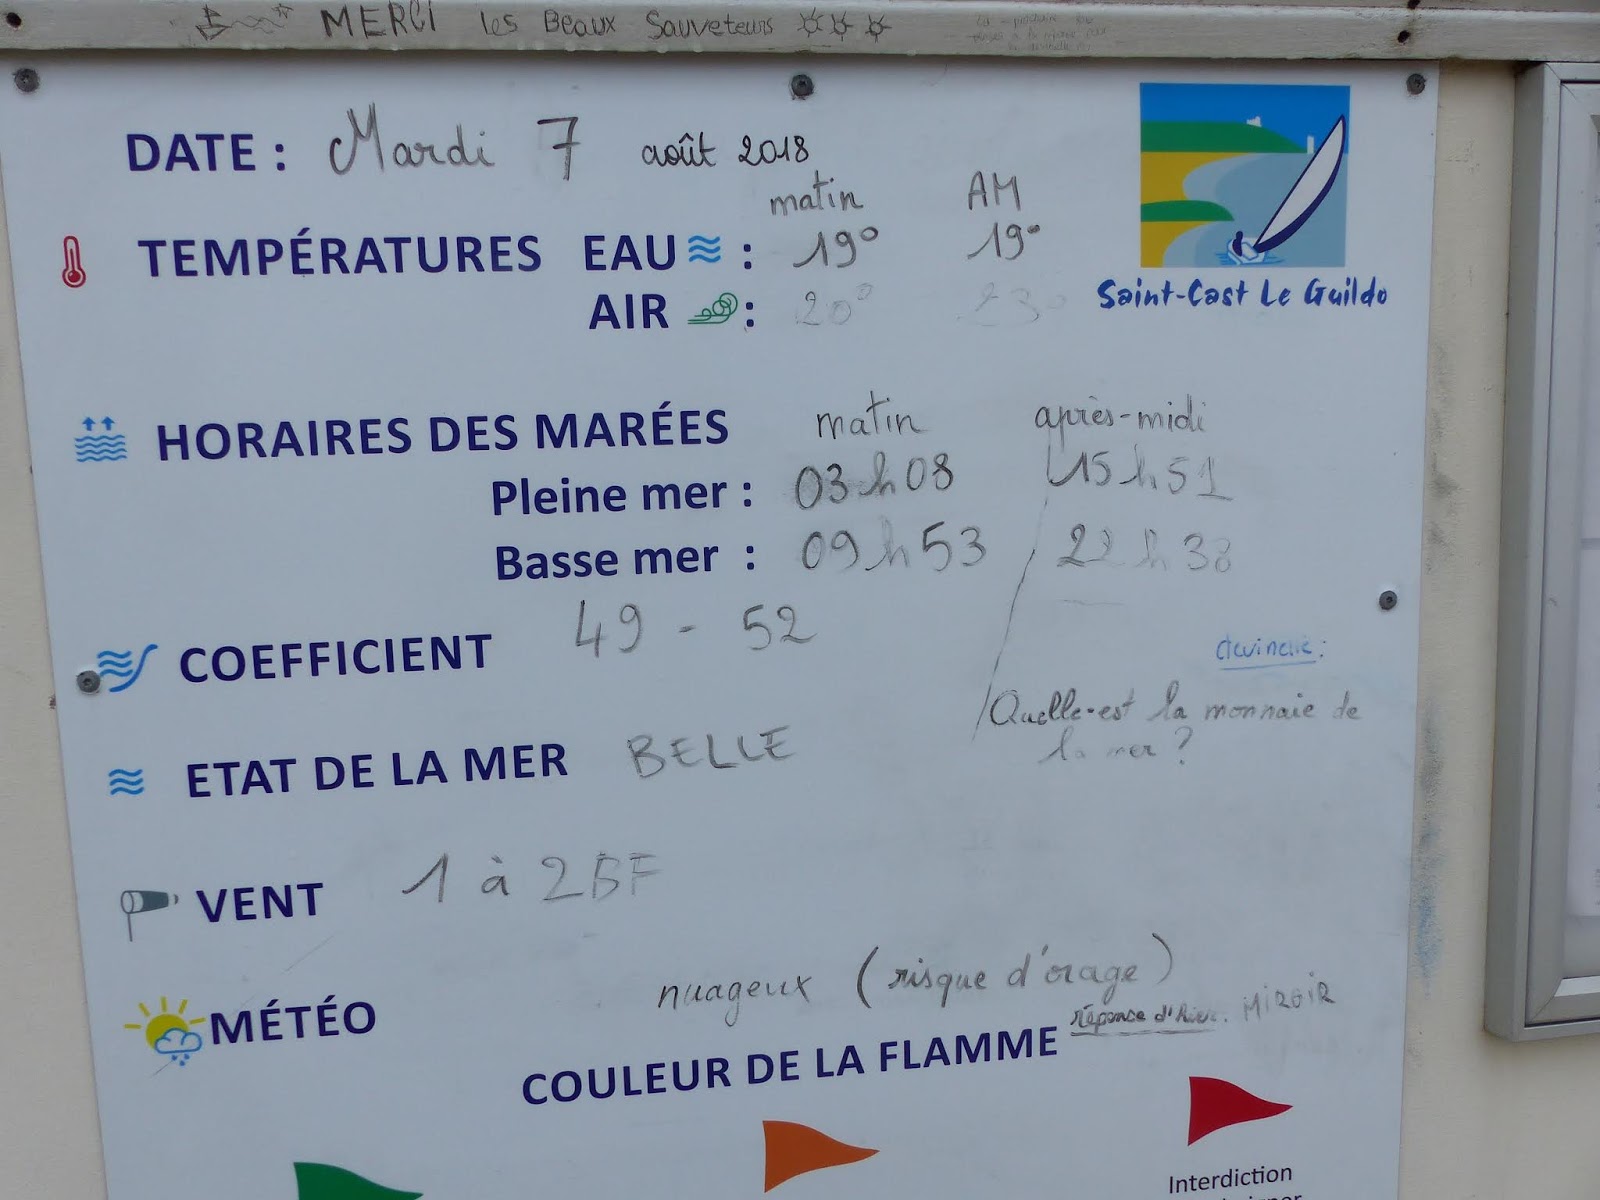 MERCI les Beaux Sauveteurs
DATE : Mardi 7 août 2018
matin AM
TEMPÉRATURES EAU : 19° 19°
AIR : 20° 23°
Saint-Cast Le Guildo
HORAIRES DES MARÉES matin après-midi
Pleine mer : 03h08 15h51
Basse mer : 09h53 22h38
COEFFICIENT 49 - 52
devinette :
Quelle est la monnaie de
la mer ?
ETAT DE LA MER BELLE
VENT 1 à 2BF
MÉTÉO nuageux (risque d'orage)
réponse d'hier: MIROIR
COULEUR DE LA FLAMME
Interdiction